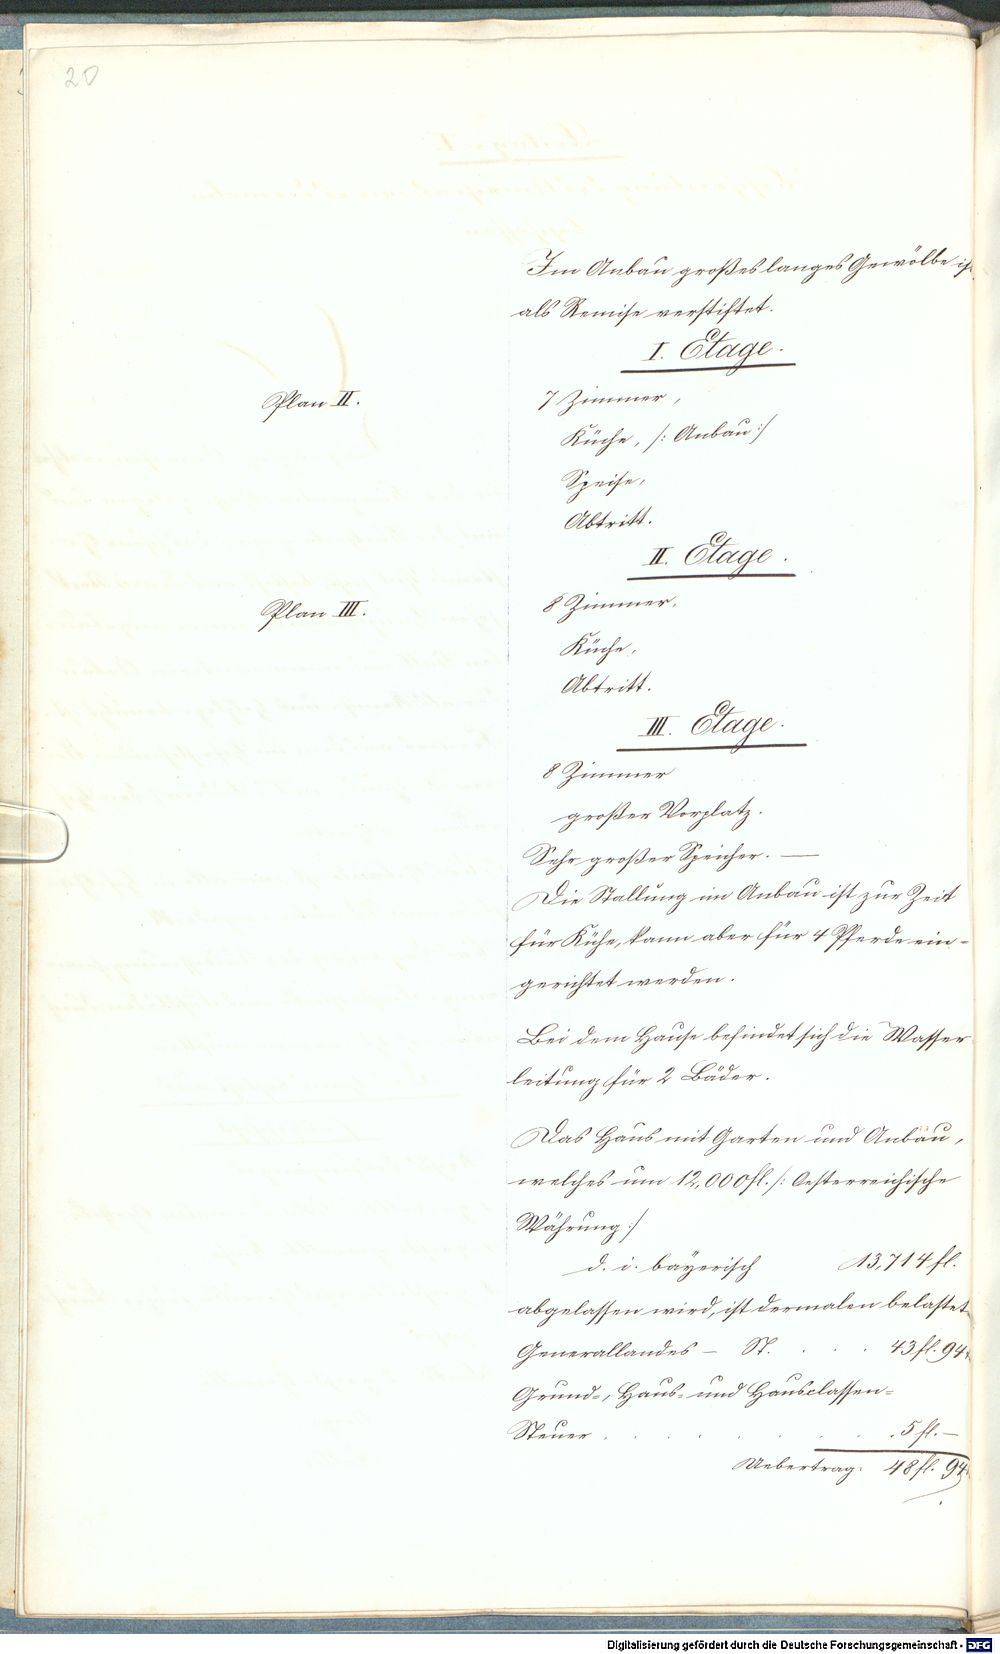 20
Im Anbau großes langes Gewölbe ist
als Remise verstiftet.
I. Etage.
Plan II.
7 Zimmer,
Küche, /: Anbau :/
Speise,
Abtritt.
II. Etage.
Plan III.
8 Zimmer,
Küche,
Abtritt.
III. Etage.
8 Zimmer
großer Vorplatz.
Sehr großer Speicher. —
Die Stallung im Anbau ist zur Zeit
für Kühe, kann aber für 4 Pferde ein-
gerichtet werden.
Bei dem Hause befindet sich die Wasser
leitung für 2 Bäder.
Das Haus mit Garten und Anbau,
welches um 12,000 fl. /: Oesterreichische
Währung :/
d. i. bayerisch 13,714 fl.
abgelassen wird, ist dermalen belastet
Generallandes - St. . . . 43 fl. 94
Grund-, Haus- und Hausclassen-
Steuer . . . . . . . 5 fl. —
Uebertrag. 48 fl. 94
Digitalisierung gefördert durch die Deutsche Forschungsgemeinschaft - DFG